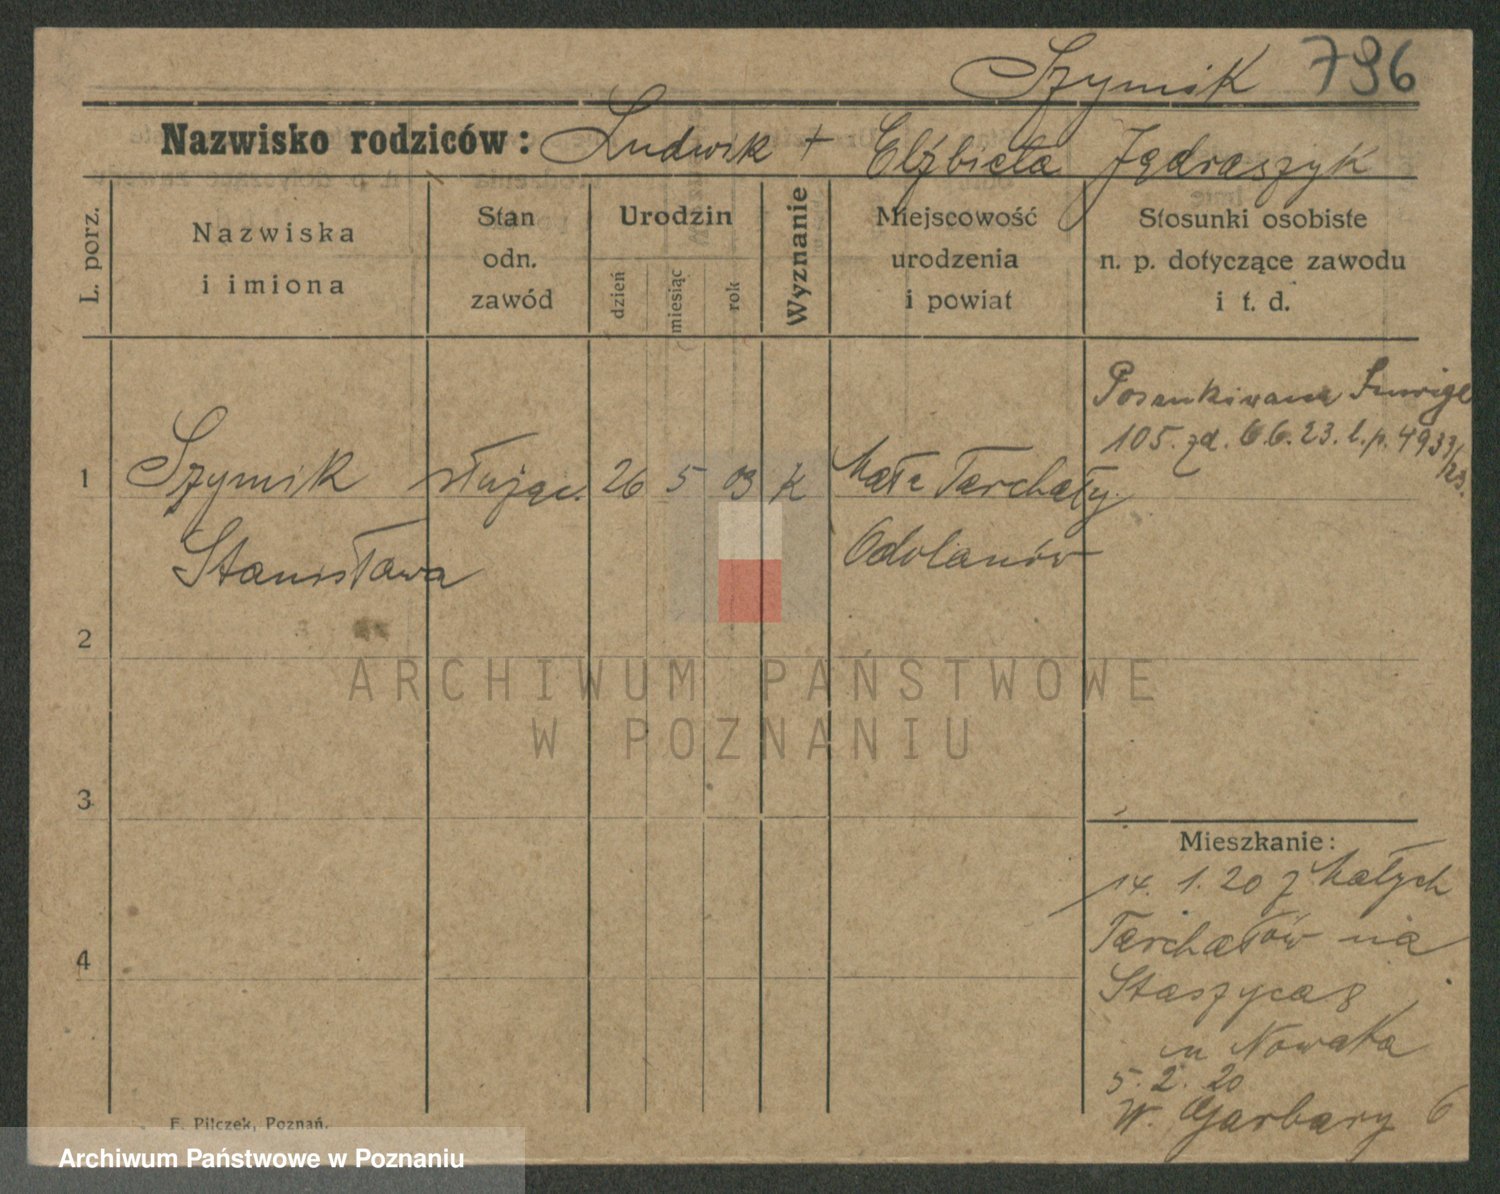 Szymik 796
Nazwisko rodziców: Ludwik + Elżbieta Jędraszyk
L. porz.
Nazwiska
i imiona
Stan
odn.
zawód
Urodzin
dzień
miesiąc
rok
Wyznanie
Miejscowość
urodzenia
i powiat
Stosunki osobiste
n. p. dotyczące zawodu
i t. d.
Poszukiwana
105. zd. 6.6.23. l.p. 4933/23.
1 Szymik służąc. 26 5 03 K Małe Tarchały
Stanisława Odolanów
2
3
4
Mieszkanie:
14. 1. 20 z Małych
Tarchałów na
Staszyca 8
u Nowaka
5. 2. 20
W. Garbary 6
F. Pilczek, Poznań.
ARCHIWUM PAŃSTWOWE
W POZNANIU
Archiwum Państwowe w Poznaniu